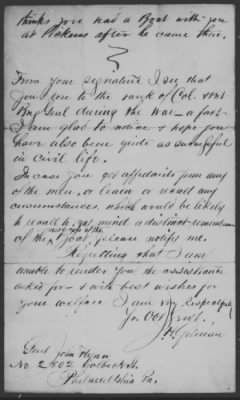 thinks you had a Boat with you
at Pickens after he came their.
From your signature I see that
you rose to the rank of Col. & Bvt
Brig Genl during the war — a fact
I am glad to notice & hope you
have also been quite as successful
in civil life.
In case you get affidavits from any
of the men, or learn or recall any
circumstances, which would be likely
to recall to my mind a distinct remembrance
of the Boat, please notify me.
Regretting that I am
unable to render you the assistance
asked for & with best wishes for
your welfare I am Very Respectfully
Yr. Obt Srvt.
J H Gilman
Genl John Flynn
No 2602
Philadelphia Pa.